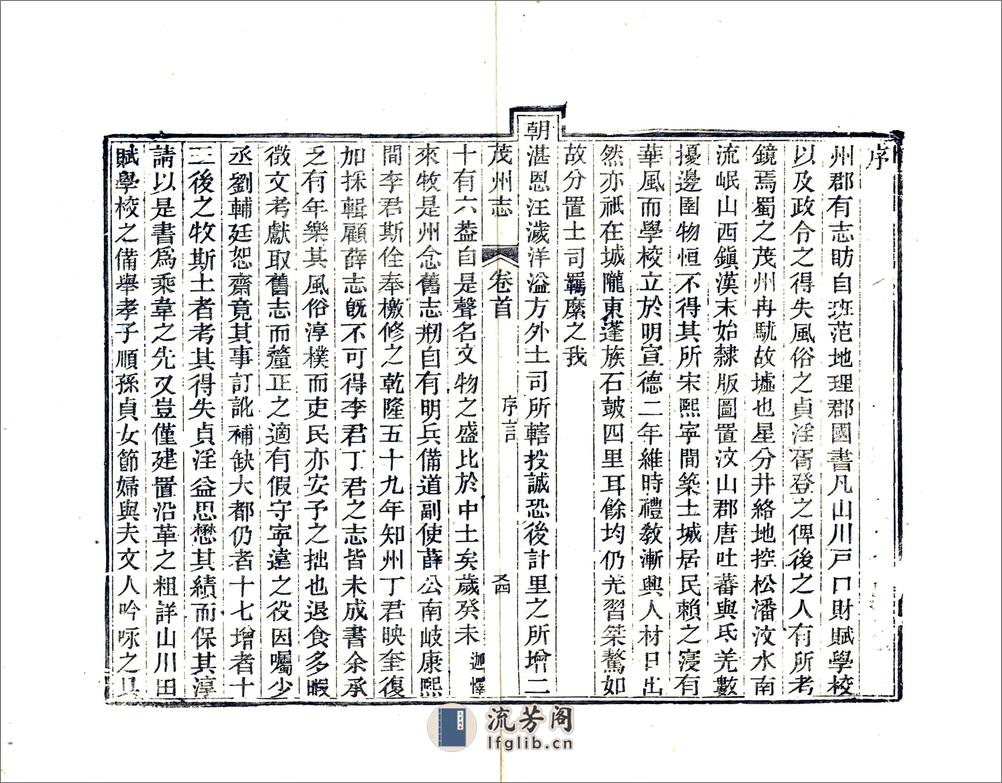 序
州郡有志昉自班范地理郡國書凡山川戸口財賦學校
以及政令之得失風俗之貞淫胥登之俾後之人有所考
鏡焉蜀之茂州冉駹故墟也星分井絡地控松潘汶水南
流岷山西鎮漢末始隸版圖置汶山郡唐吐蕃與氐羌數
擾邊圉物恒不得其所宋熙寧間築土城居民賴之寖有
華風而學校立於明宣德二年維時禮敎漸興人材日出
然亦祇在城隴東蓬族石皷四里耳餘均仍羌習桀驁如
故分置土司羈縻之我
朝湛恩汪濊洋溢方外土司所轄投誠恐後計里之所增二
茂州志
卷首
序言
又四
十有六葢自是聲名文物之盛比於中土矣歲癸未迦懌
來牧是州念舊志剏自有明兵備道副使薛公南岐康熙
間李君斯佺奉檄修之乾隆五十九年知州丁君映奎復
加採輯顧薛志既不可得李君丁君之志皆未成書余承
乏有年樂其風俗淳樸而吏民亦安予之拙也退食多暇
徴文考獻取舊志而釐正之適有假守寧遠之役因囑少
丞劉輔廷恕齋竟其事訂訛補缺大都仍者十七增者十
三後之牧斯土者考其得失貞淫益思懋其績而保其淳
請以是書爲乘韋之先又豈僅建置沿革之粗詳山川田
賦學校之備舉孝子順孫貞女節婦與夫文人吟咏之具
流芳阁
lfglib.cn